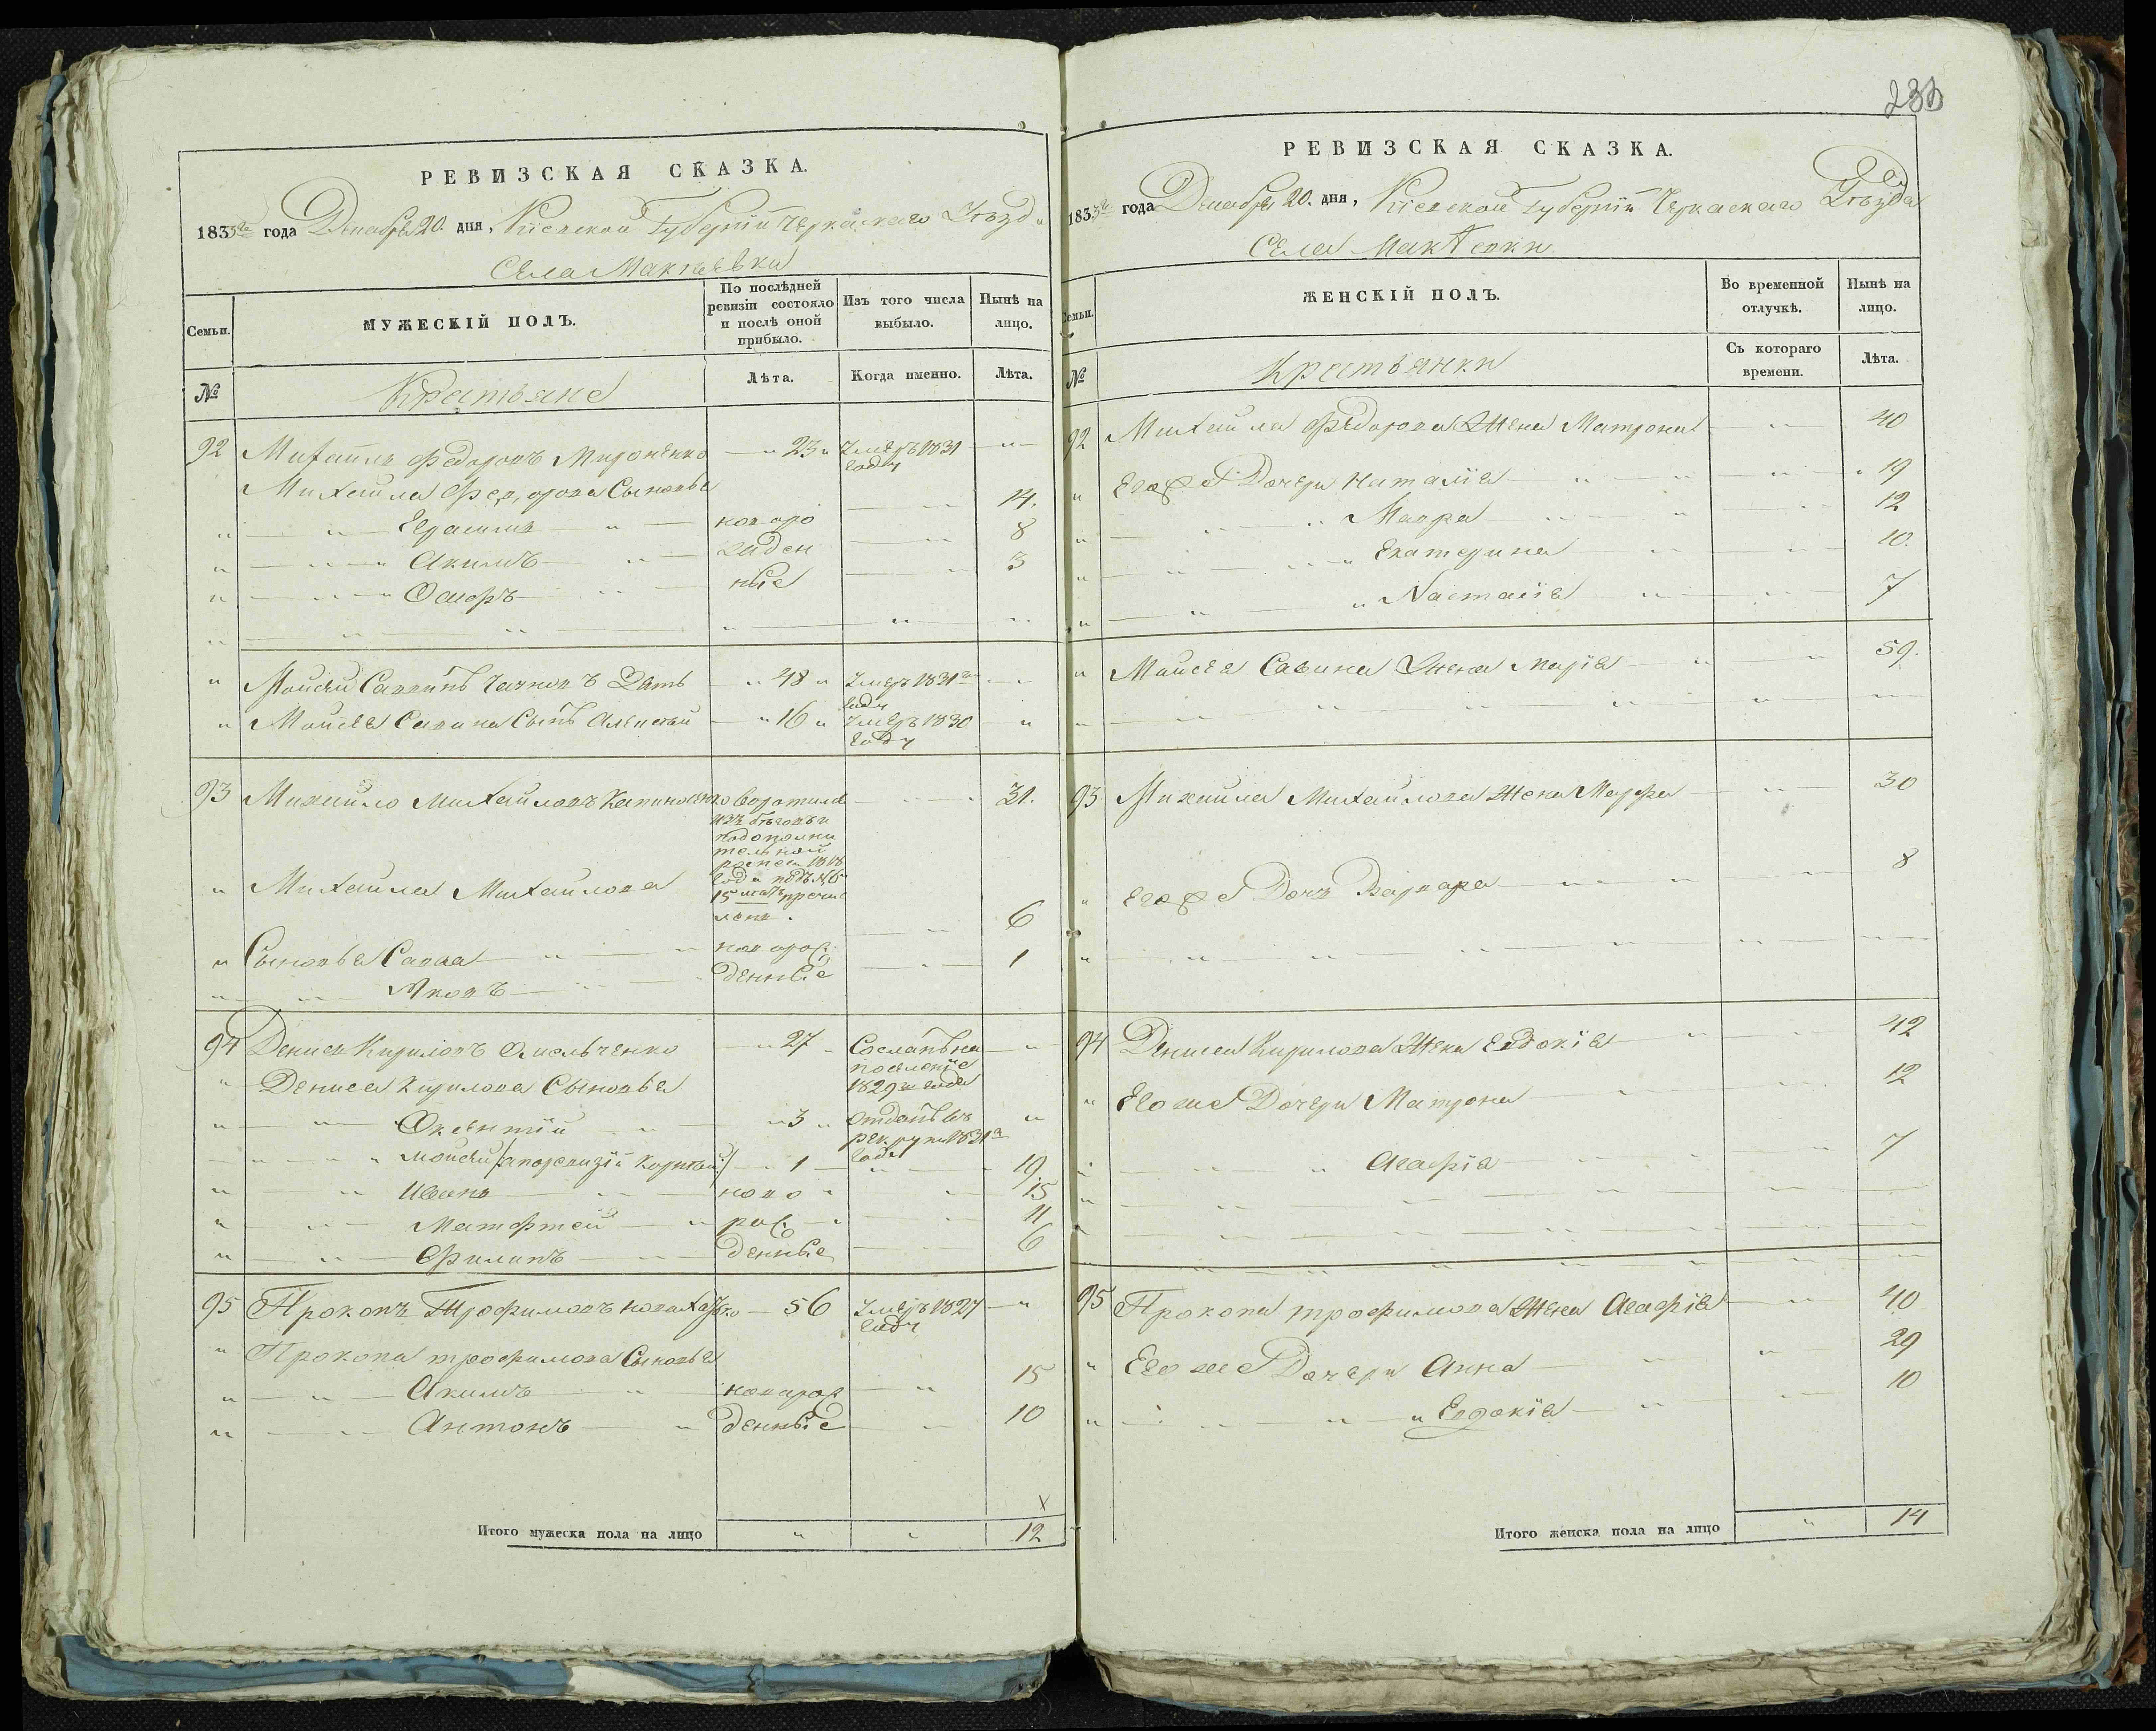 РЕВИЗСКАЯ СКАЗКА.
183 года Декабря 20. дня, Кіевской Губерніи Черкаскаго Уѣзда
Села Макѣевки
Семьи.
МУЖЕСКІЙ ПОЛЪ.
По послѣдней ревизіи состояло и послѣ оной прибыло.
Изъ того числа выбыло.
Нынѣ на лицо.
№
Крестьяне
Лѣта.
Когда именно.
Лѣта.
92 Михаилъ Федоровъ Мироненко — 23 Умеръ 1831 году —
Михаила Федорова Сыновья
Герасимъ — новоро 14.
Акимъ — жден 8
— ные 3
Мойсей Саввинъ Зять 48 Умеръ 1831 году
Мойсея Савина Сынъ Алексѣй — 16 Умеръ 1830 году
93 Михайло Михайловъ воротился 31.
изъ бѣговъ и
подополни
тельной
1818
года подъ № 6
15 лѣтъ
Михаила Михайлова
Сыновья Савва — новорож 6
Яковъ — денные 1
94 Денисъ Кириловъ Омельченко — 27 Сосланъ на
поселеніе
1829 года
Дениса Кирилова Сыновья
3 отданъ въ
рекруты 1831
года
Мойсей 1 19.
Иванъ — ново 15
Матфей — рож 11
Филипъ — денные 6
95 Прокопъ Трофимовъ — 56 Умеръ 1827 году
Прокопа трофимова Сыновья
Акимъ — новорож 15
Антонъ — денные 10
Итого мужеска пола на лицо 12
233
РЕВИЗСКАЯ СКАЗКА.
183 года Декабря 20. дня, Кіевской Губерніи Черкаскаго Уѣзда
Села Макѣевки
Семьи.
ЖЕНСКІЙ ПОЛЪ.
Во временной отлучкѣ.
Нынѣ на лицо.
№
Крестьянки
Съ котораго времени.
Лѣта.
92 Михайла Федорова Жена Матрона 40
Его же Дочери Наталія 19
Мавра 12
Екатерина 10.
Настасія 7
Мойсея Савина Жена Марія 59.
93 Михайла Михайлова Жена Марфа 30
Его же Дочь Варвара 8
94 Дениса Кирилова Жена Евдокія 42
Его же Дочери Матрона 12
Агафія 7
95 Прокопа трофимова Жена Агафія 40
Его же Дочери Анна 29
Евдокія 10
Итого женска пола на лицо 14